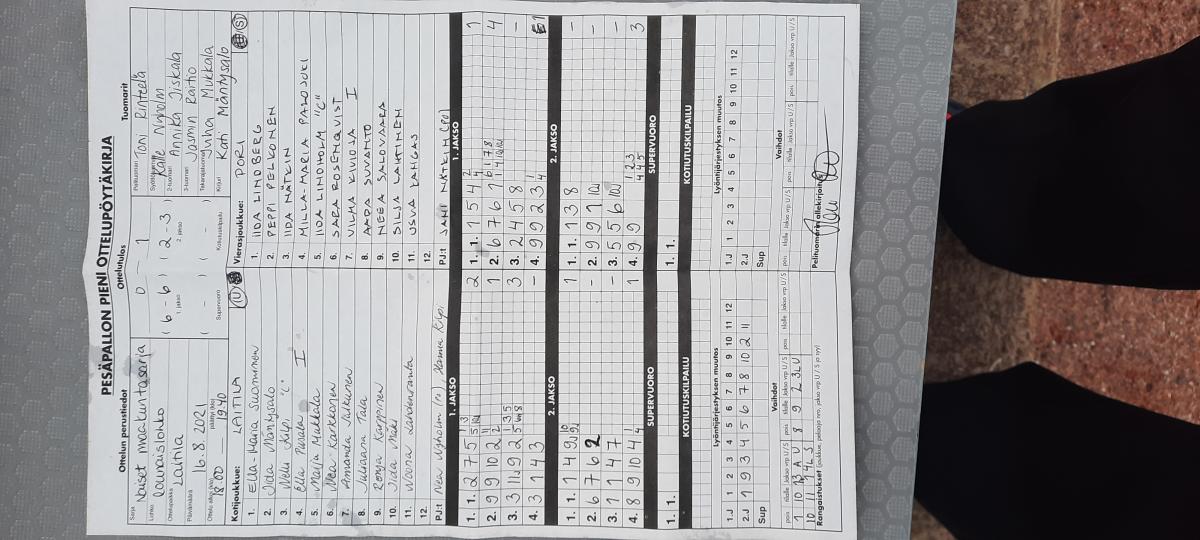 PESÄPALLON PIENI OTTELUPÖYTÄKIRJA
Ottelun perustiedot
Ottelutulos
Tuomarit
Sarja Naiset maakuntasarja
Lohko lounaislohko
Ottelupaikka Laitila
Päivämäärä 16.8.2021
Ottelu alkoi (klo) 18.00 päättyi (klo) 19.40
0 - 1
( 6 - 6 ) ( 2 - 3 )
1. jakso 2. jakso
( - ) ( - )
Supervuoro Kotiutuskilpailu
Pelituomari Toni Rinteelä
Syöttötuomari Kalle Nyholm
2-tuomari Annika Iiskala
3-tuomari Jasmin Raitio
Takarajatuomari Juha Mukkala
Kirjuri Kati Mäntysalo
Kotijoukkue: LAITILA (U)
1. Ella-Maria Suominen
2. Iida Mäntysalo
3. Nelli Kilpi "C"
4. Ella Pirilä I
5. Marja Mukkala
6. Ulla Karkkonen
7. Amanda Julkunen
8. Juliaana Tala
9. Ronja Karppinen
10. Iida Mäki
11. Noona Lahdenranta
12.
PJ:t Nea Nyholm (P), Hanna Kilpi
Vierasjoukkue: PORI (S)
1. IIDA LINDBERG
2. PEPPI PELKONEN
3. IIDA NÄTKIN
4. MILLA-MARIA PALOJOKI
5. IIDA LINDHOLM "C"
6. SARA ROSENQVIST
7. VILMA KIVIOJA I
8. AADA SUVANTO
9. NEEA SALOVAARA
10. SILJA LAHTINEN
11. USVA LANGAS
12.
PJ:t JANI NÄTKIN (PJ)
1. JAKSO
1. 1. 2 7 5 2
2. 9 9 10 2 1
3. 3 11 9 2 3
4. 3 1 4 3 -
1. JAKSO
1. 1. 1 5 4 1
2. 6 7 6 1 4
3. 2 4 5 8 -
4. 9 9 2 3 1
2. JAKSO
1. 1. 1 4 9 1
2. 6 7 6 2 -
3. 1 1 4 7 -
4. 8 9 10 4 1
2. JAKSO
1. 1. 1 3 8 -
2. 9 9 1 -
3. 5 5 6 -
4. 9 9 3
SUPERVUORO
1. 1.
SUPERVUORO
1. 1.
KOTIUTUSKILPAILU
KOTIUTUSKILPAILU
Lyöntijärjestyksen muutos
1.J 1 2 3 4 5 6 7 8 9 10 11 12
2.J 1 9 3 4 5 6 7 8 10 2 11
Sup
Lyöntijärjestyksen muutos
1.J 1 2 3 4 5 6 7 8 9 10 11 12
2.J
Sup
Vaihdot
pois tilalle Jakso vrp U / S pois tilalle Jakso vrp U / S pois tilalle Jakso vrp U / S
Vaihdot
pois tilalle Jakso vrp U / S pois tilalle Jakso vrp U / S pois tilalle Jakso vrp U / S
Rangaistukset (joukkue, pelaaja nro, jakso vrp U / S ja syy)
Pelituomarin allekirjoitus